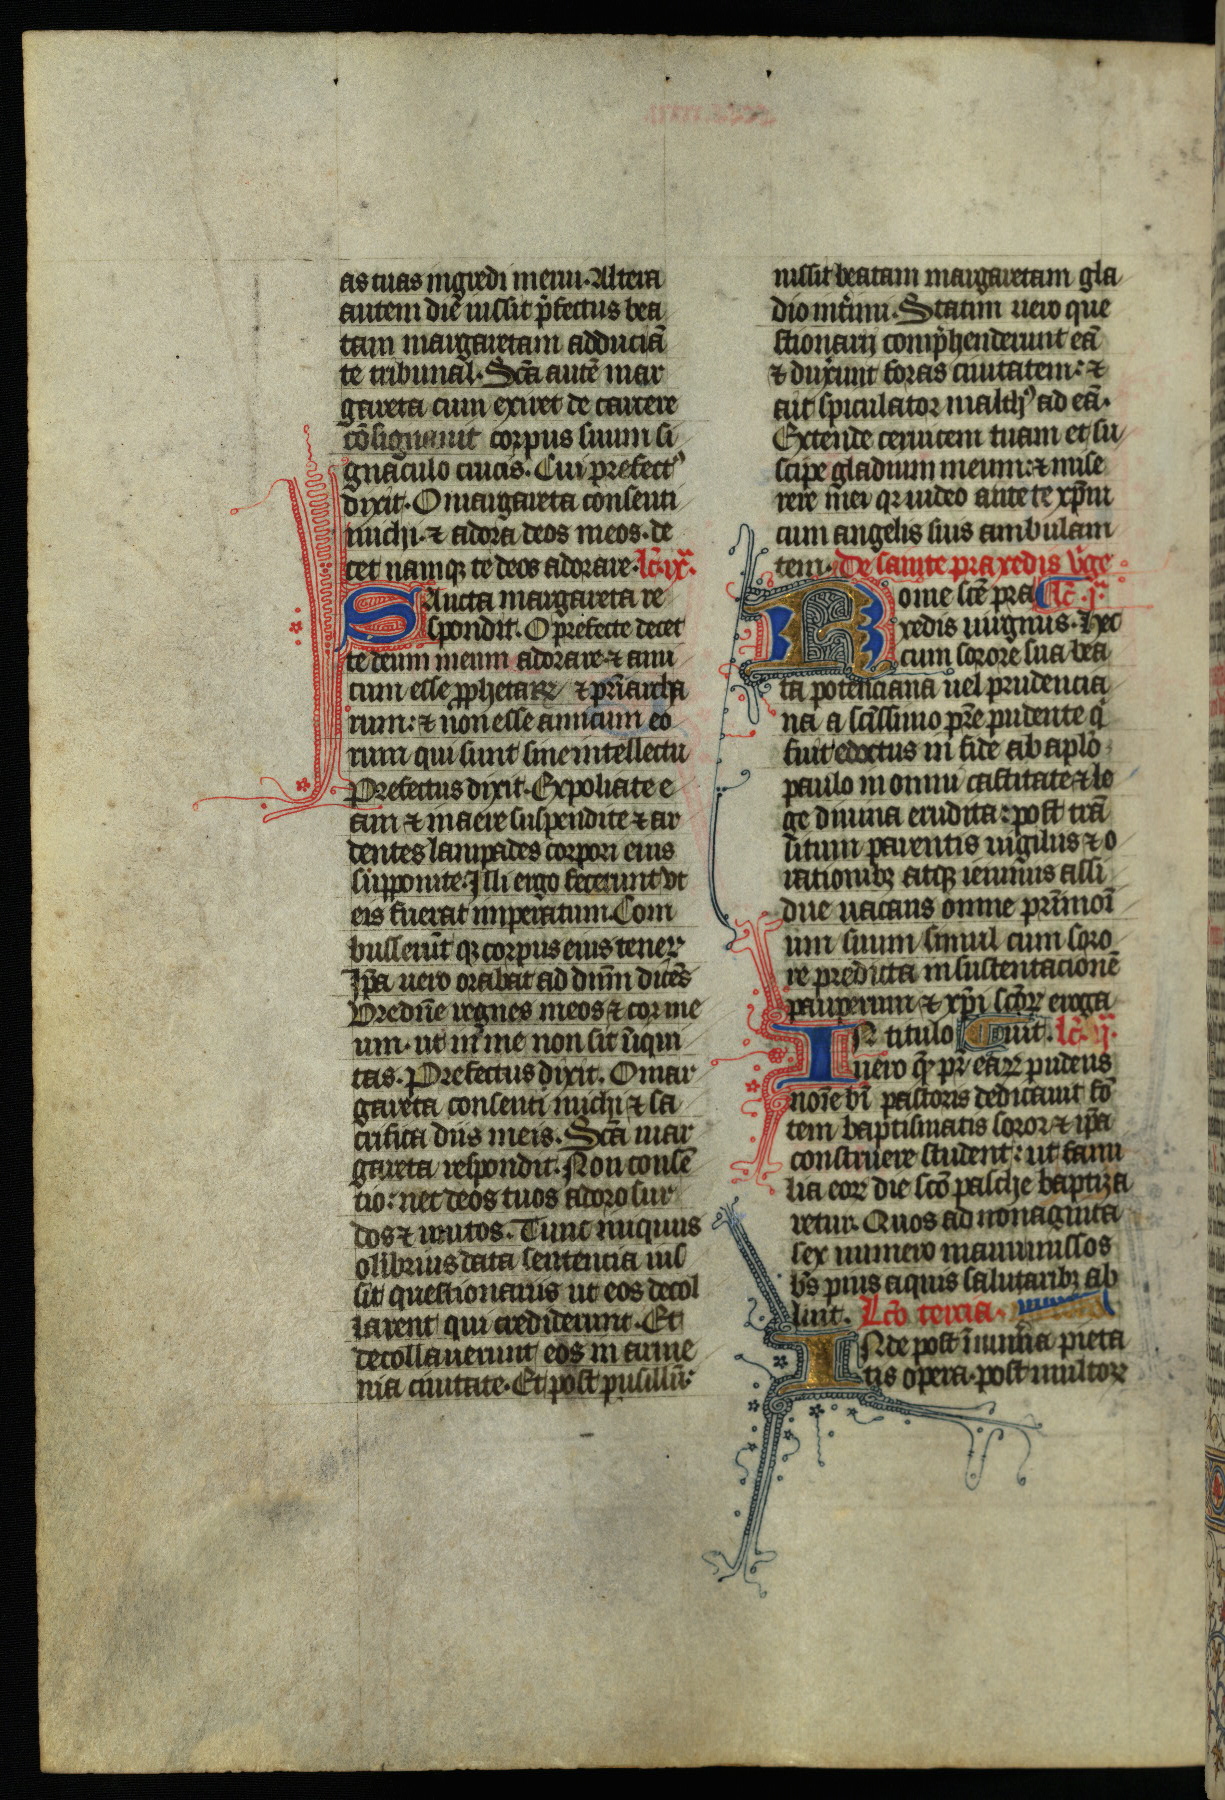 as tuas ingredi merui. Altera
autem die iussit p̄fectus bea
tam margaretam adduci ā
te tribunal. Sc̄a autē mar
gareta cum exiret de carcere
cōsignauit corpus suum si
gnaculo crucis. Cui prefectꝰ
dixit. O margareta consenti
michi. ⁊ adora deos meos. de
cet namqꝫ te deos adorare. lc̄. ix.
Sancta margareta re
spondit. O prefecte decet
te deum meum adorare ⁊ ami
cum esse ꝓphetaꝝ ⁊ pr̄iarcha
rum: ⁊ non esse amicum eo
rum qui sunt sine intellectu
Prefectus dixit. Expoliate e
am ⁊ in aere suspendite ⁊ ar
dentes lampades corpori eius
supponite. Illi ergo fecerunt vt
eis fuerat imperatum. Com
busserūt qꝫ corpus eius tener
Ip̄a uero orabat ad dn̄m dicēs
Vre dn̄e regnes meos ⁊ cor me
um. ut in me non sit īiqui
tas. Prefectus dixit. O mar
gareta consenti michi ⁊ sa
crifica diis meis. Sc̄a mar
gareta respondit. Non consē
tio: nec deos tuos adoro sur
dos ⁊ mutos. Tunc iniquus
olibrius data sentencia ius
sit questionariis ut eos decol
larent qui crediderunt. Et
decollauerunt eos in arme
nia ciuitate. Et post pusillū
iussit beatam margaretam gla
dio mr̄iri. Statim uero que
stionarii comp̄henderunt eā
⁊ duxerunt foras ciuitatem: ⁊
ait spiculator malchꝰ ad eā.
Extende ceruicem tuam et su
scipe gladium meum: ⁊ mise
rere mei qꝛ uideo ante te xp̄m
cum angelis suis ambulan
tem. De sancte praxedis v̄ge
Rome sc̄e pra lc̄. j.
xedis uirginis. Hec
cum sorore sua bea
ta potenciana uel prudencia
na a sc̄issimo pr̄e pudente q̄
fuit edoctus in fide ab aplō
paulo in omni castitate ⁊ le
ge diuina erudita: post trā
situm parentis uigiliis ⁊ o
rationibꝫ atqꝫ ieiuniis assi
due uacans omne pr̄imoī
um suum simul cum soro
re predicta in sustentacionē
pauperum ⁊ xp̄i sc̄oꝝ eroga
uit. lc̄. ij.
In titulo
uero qē pr̄ eaꝝ pudens
noīe bī pastoris dedicauit fō
tem baptismatis soror ⁊ ip̄a
construere student: ut fami
lia eoꝝ die sc̄o pasche baptiza
retur. Quos ad nonaginta
sex numero manumissos
bs̄ pius aquis salutaribꝫ ab
luit. Lc̄o tercia.
Inde post īnumīa pieta
tis opera. post multoꝝ